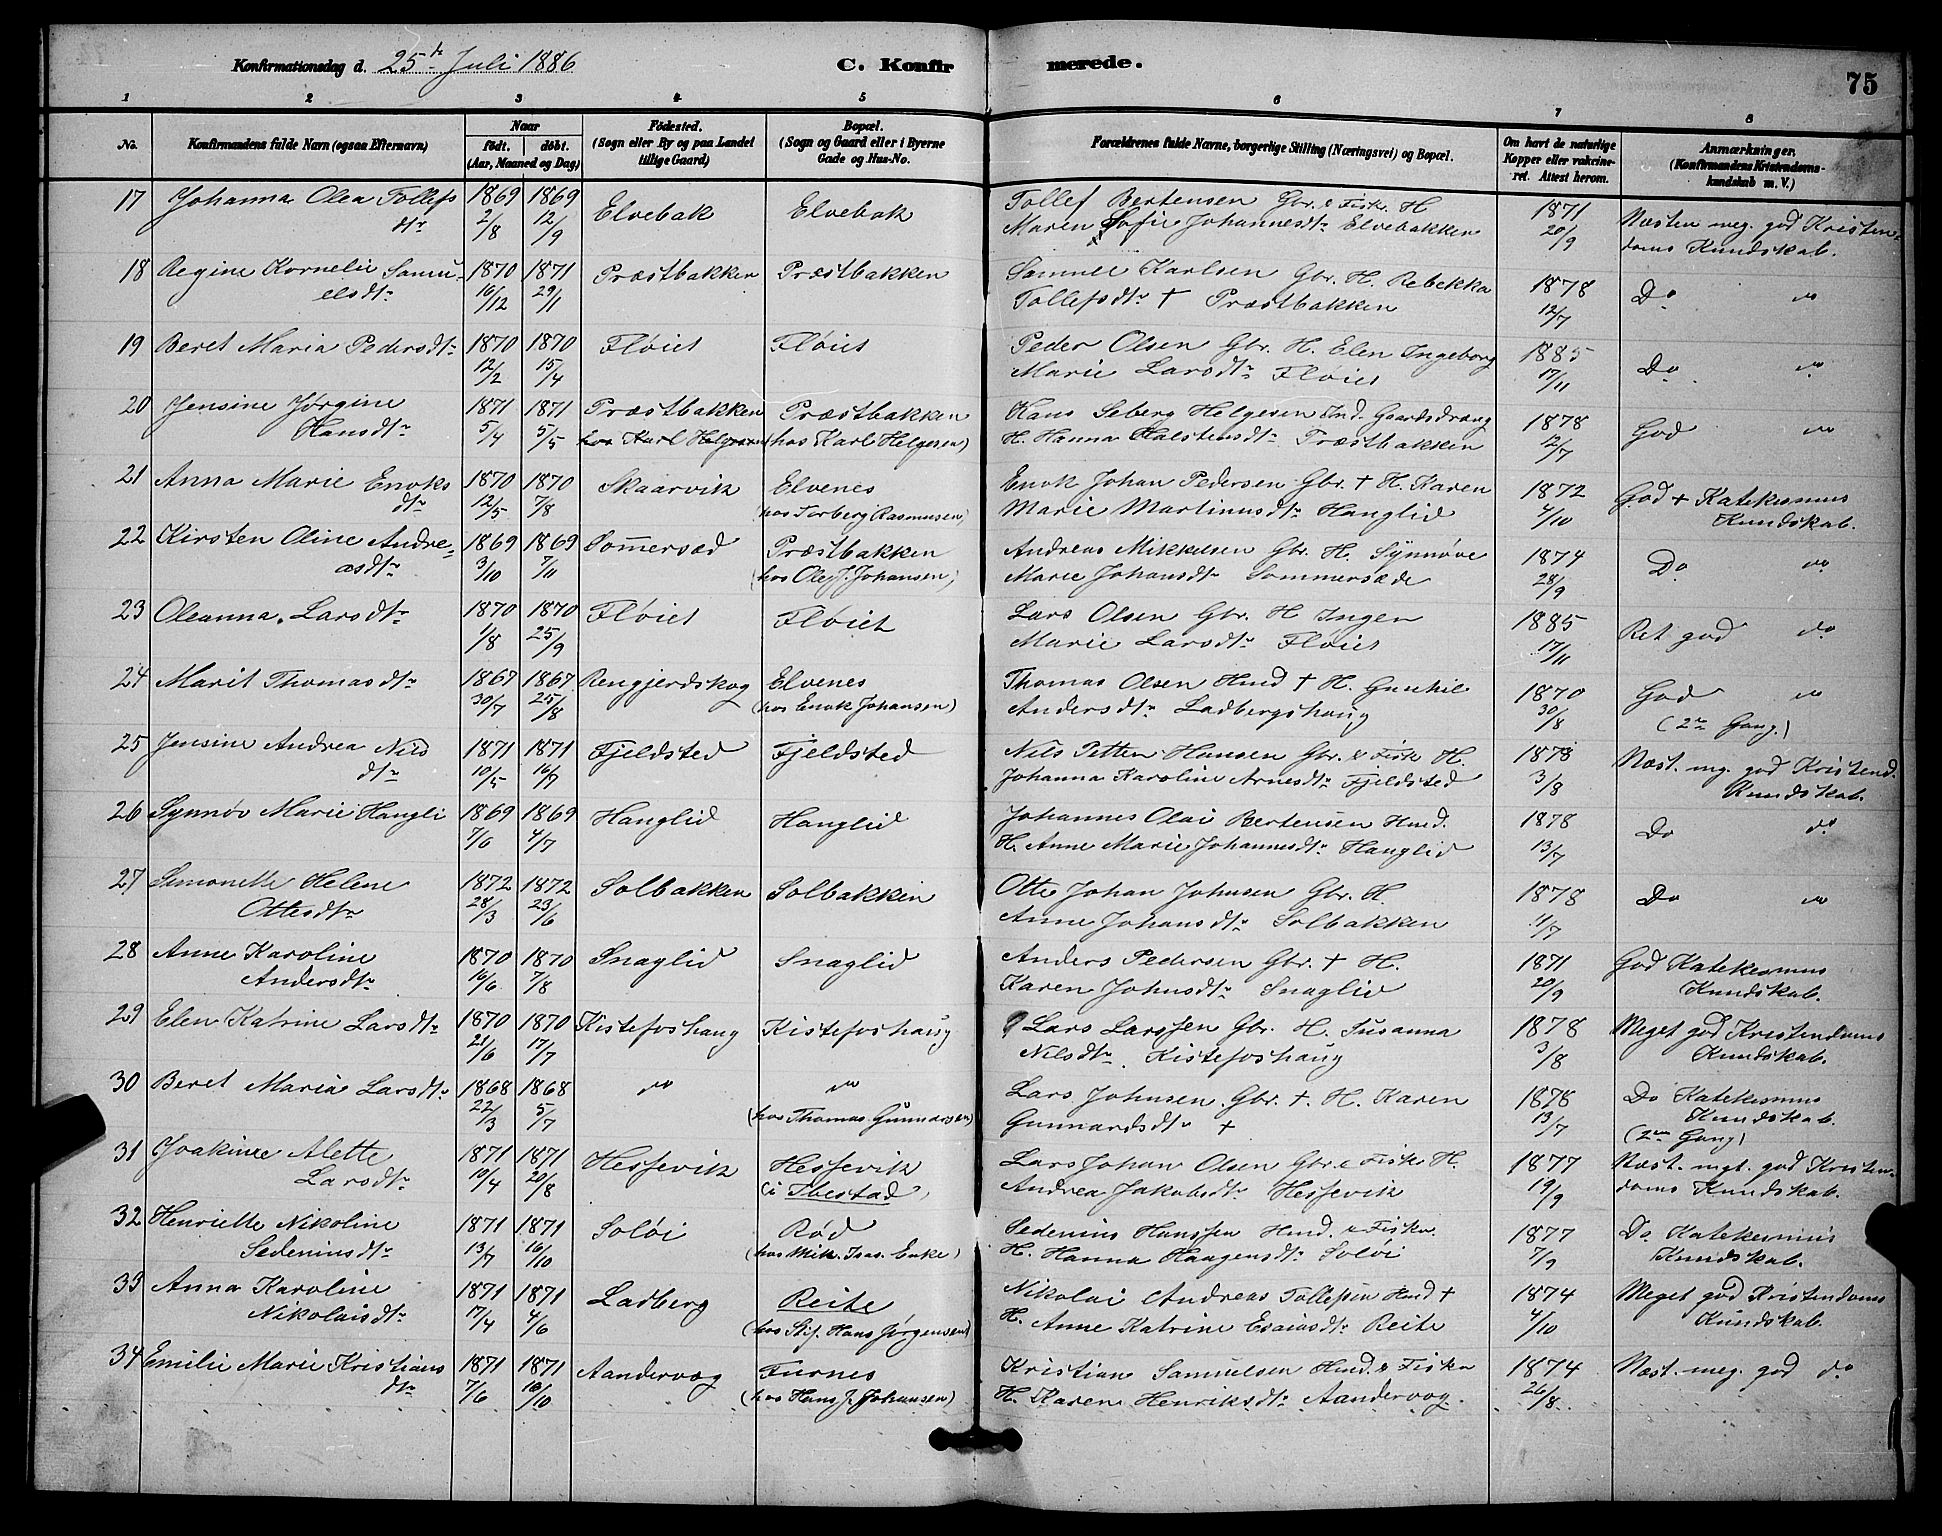 Konfirmationsdag d. 25de Juli 1886 C. Konfirmerede. 75
1 2 3 4 5 6 7 8
No. Konfirmandens fulde Navn (ogsaa Efternavn) Naar født. døbt. (Aar, Maaned og Dag) Fødested. (Sogn eller By og paa Landet tillige Gaard) Bopæl. (Sogn og Gaard eller i Byerne Gade og Hus-No. Forældrenes fulde Navne, borgerlige Stilling (Næringsvei) og Bopæl. Om havt de naturlige Kopper eller vakcineret. Attest herom. Anmærkninger. (Konfirmandens Kristendomskundskab m. V.)
17 Johanna Olea Tollefs 1869 1869 Elvebak Elvebak Tollef Bertensen Gbr. & Fisk. H 1871 Næsten meg. god Kristen-
dtr 2/8 12/9 Maren Sofie Johannesdtr Elvebakken 20/9 doms Kundskab.
18 Regine Kornelie Samu- 1870 1871 Præstbakken Præstbakken Samuel Karlsen Gbr. H. Rebekka 1878 Do "
elsdtr 16/12 29/1 Tollefsdtr + Præstbakken 12/7
19 Beret Maria Pedersdtr 1870 1870 Fløiet Fløiet Peder Olsen Gbr. H. Elen Ingeborg 1885 Do "
12/2 15/4 Marie Larsdtr Fløiet 17/11
20 Jensine Jørgine 1871 1871 Præstbakken Præstbakken Hans Seberg Helgesen Ind. Gaardsdræng 1878 God "
Hansdtr 5/4 5/5 hos Karl Helgesen (hos Karl Helgesen) H. Hanna Halstensdtr Præstbakken 12/7
21 Anna Marie Enoks 1870 1870 Skaarvik Elvenes Enok Johan Pedersen Gbr. + H. Karen 1872 God + Katekesmus
dtr 12/5 7/8 (hos Torberg Rasmusen) Marie Martinusdtr Hanglid 4/10 Kundskab.
22 Kirsten Oline Andre- 1869 1869 Sommersæd Præstbakken Andreas Mikkelsen Gbr. H. Synnøve 1874 Do "
asdtr 3/10 7/11 (hos Ole J. Johansen) Marie Johansdtr Sommersæde 28/9
23 Oleanna Larsdtr 1870 1870 Fløiet Fløiet Lars Olsen Gbr. H Ingen 1885 Ret god do
1/8 25/9 Marie Larsdtr Fløiet 17/11
24 Marit Thomasdtr 1867 1867 Rengjerdskog Elvenes Thomas Olsen Hmd + H. Gunhil 1870 God "
30/7 25/8 (hos Enok Johansen) Andersdtr Ladbergshaug 30/8 (2n Gang.)
25 Jensine Andrea Nils 1871 1871 Fjeldsted Fjeldsted Nils Petter Hansen Gbr. & Fisk H. 1878 Næst. mg. god Kristend.
dtr 10/5 16/7 Johanna Karoline Arnesdtr Fjeldsted 3/8 Kundskab.
26 Synnøv Marie Hangli 1869 1869 Hanglid Hanglid Johannes Olai Bertensen Hmd. 1878 Do do
7/6 4/7 H. Anne Marie Johannesdtr Hanglid 13/7
27 Simonette Helene 1872 1872 Solbakken Solbakken Otte Johan Johnsen Gbr. H. 1878 Do "
Ottesdtr 28/3 23/6 Anne Johansdtr Solbakken 11/7
28 Anne Karoline 1870 1870 Snaglid Snaglid Anders Pedersen Gbr. + H. 1871 God Katekesmus
Andersdtr 16/6 7/8 Karen Johnsdtr Snaglid 20/9 Kundskab.
29 Elen Katrine Larsdtr 1870 1870 Kistefoshaug Kistefoshaug Lars Larssen Gbr. H. Susanna 1878 Meget god Kristendoms
21/6 17/7 Nilsdtr Kistefoshaug 3/8 Kundskab.
30 Beret Maria Larsdtr 1868 1868 " " Lars Johnsen Gbr. +. H. Karen 1878 Do Katekesmus
22/3 5/7 (hos Thomas Gunnarsen) Gunnardsdtr + 13/7 Kundskab.
(2en Gang)
31 Joakine Alette 1871 1871 Hessevik Hessevik Lars Johan Olsen Gbr. & Fisk H. 1877 Næst. mgt. god Kristen-
Larsdtr 19/4 20/8 (i Ibestad) Andrea Jakobsdtr Hessevik 19/9 doms Kundskab.
32 Henriette Nikoline 1871 1871 Soløi Rød Sedenius Hanssen Hmd. & Fisker 1877 Do Katekesmus
Sedeniusdtr 13/7 16/10 (hos Mik. Isas. Enke) H. Hanna Haagensdtr Soløi 7/9 Kundskab.
33 Anna Karoline 1871 1871 Ladberg Reite Nikolai Andreas Tollefsen Hmd + 1874 Meget god Kristendoms
Nikolaisdtr 17/4 4/6 (hos Stif. Hans Jørgensen) H. Anne Katrine Esaiasdtr Reite 4/10 Kundskab.
34 Emilie Marie Kristians 1871 1871 Aandervog Furnes Kristian Samuelsen Hmd. & Fisker 1874 Næst. meg. god do
dtr 7/6 10/10 (hos Hans J. Johansen) H. Karen Henriksdtr Aandervog 26/8